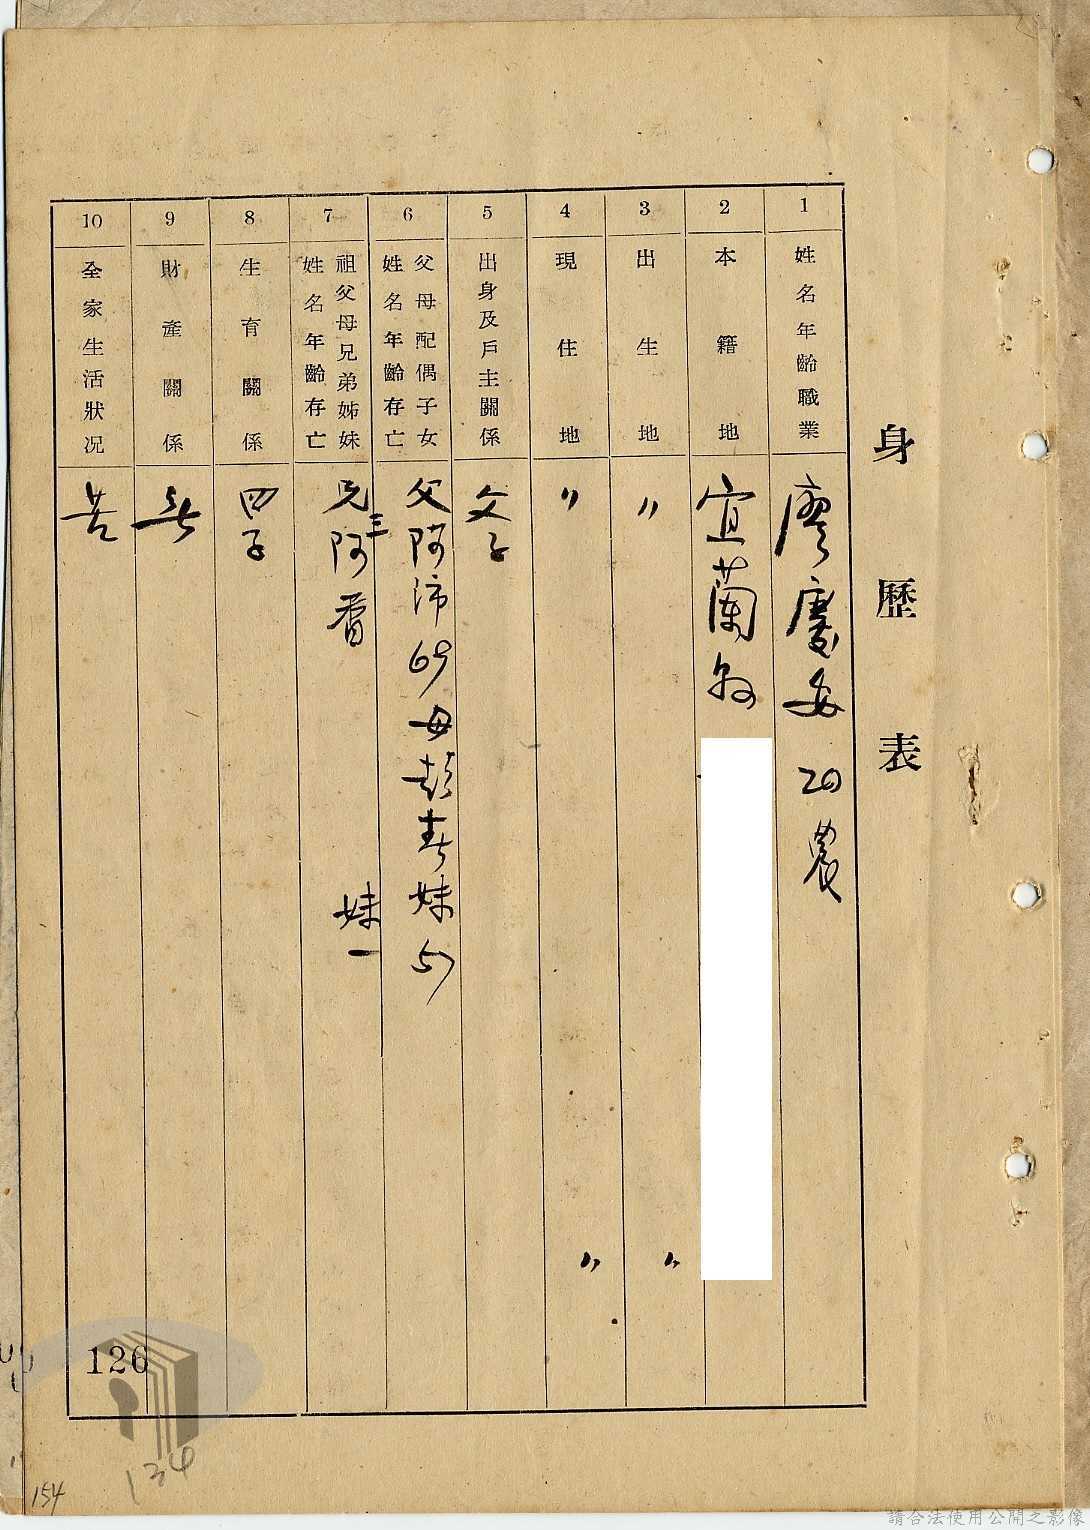 身歷表
1
姓名年齡職業
廖慶安 20 農
2
本籍地
宜蘭縣
3
出生地
〃 〃
4
現住地
〃 〃
5
出身及戶主關係
父子
6
父母配偶子女
姓名年齡存亡
父阿沛69母彭春妹57
7
祖父母兄弟姊妹
姓名年齡存亡
兄三阿番 妹一
8
生育關係
四子
9
財產關係
無
10
全家生活狀況
苦
126
134
154
請合法使用公開之影像